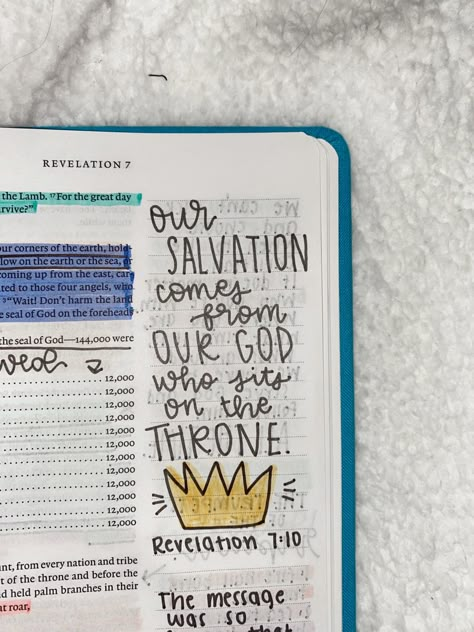 REVELATION 7
the Lamb. 17For the great day
rvive?”
our corners of the earth, hold
low on the earth or the sea, or
coming up from the east, car
ted to those four angels, who
3“Wait! Don't harm the land
e seal of God on the foreheads
the seal of God—144,000 were
12,000
12,000
12,000
12,000
12,000
12,000
12,000
12,000
12,000
12,000
12,000
12,000
nt, from every nation and tribe
t of the throne and before the
d held palm branches in their
at roar,
our
SALVATION
comes
from
OUR GOD
who sits
on the
THRONE.
Revelation 7:10
The message
was so